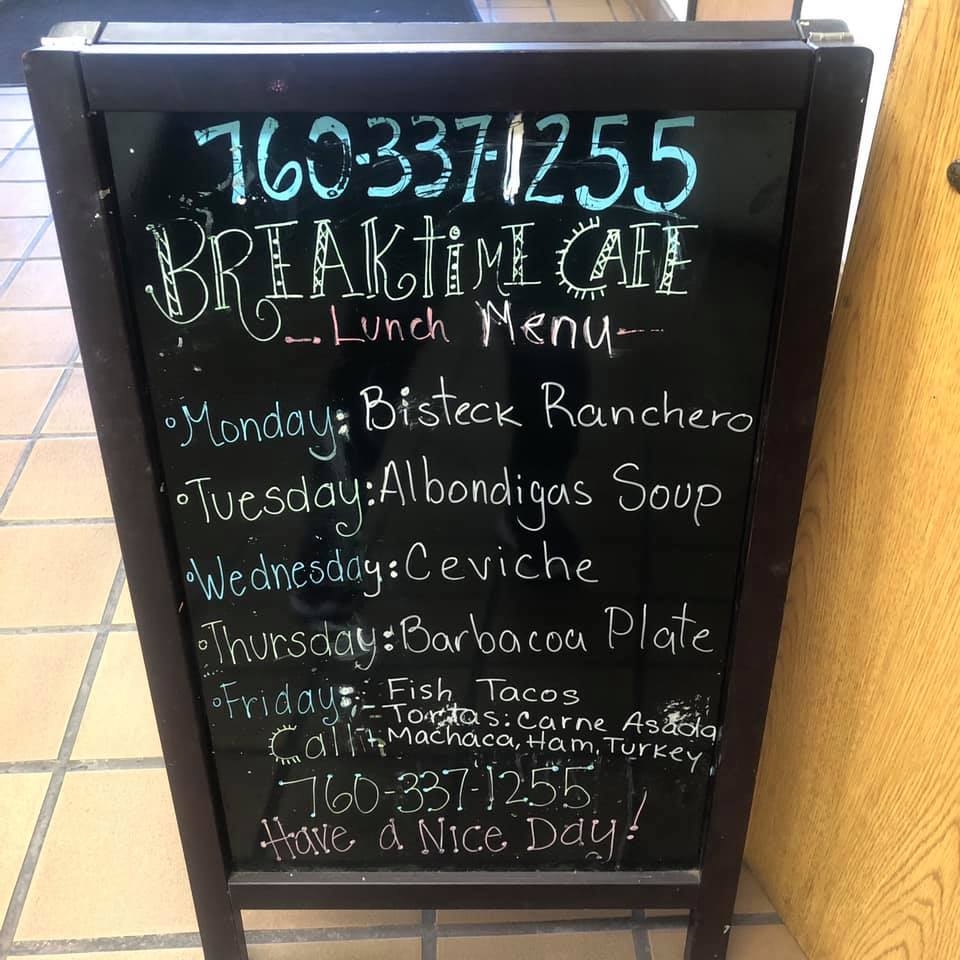 760-337-1255
BREAKTIME CAFE
- Lunch Menu -
Monday: Bisteck Ranchero
Tuesday: Albondigas Soup
Wednesday: Ceviche
Thursday: Barbacoa Plate
Friday: - Fish Tacos
- Tortas: Carne Asada
Machaca, Ham, Turkey
Call
760-337-1255
Have a Nice Day!